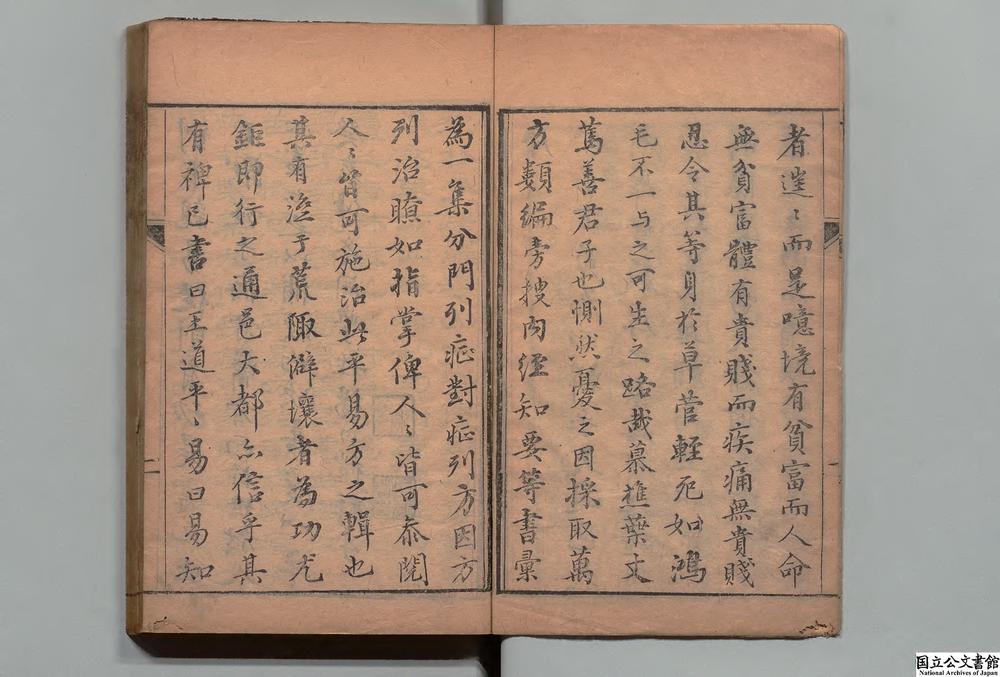 者遑〻而是噫境有貧富而人命
無貧富體有貴賤而疾痛無貴賤
忍令其等身於草菅輕死如鴻
毛不一与之可生之路哉慕樵葉丈
篤善君子也惻然憂之因採取萬
方類編旁搜内經知要等書彙
為一集分門列症對症列方因方
列治瞭如指掌俾人〻皆可叅閱
人〻皆可施治此平易方之輯也
其有溼于荒陬僻壤者為功尤
鉅即行之通邑大都亦信乎其
有裨已書曰王道平〻易曰易知
一
二
国立公文書館
National Archives of Japan